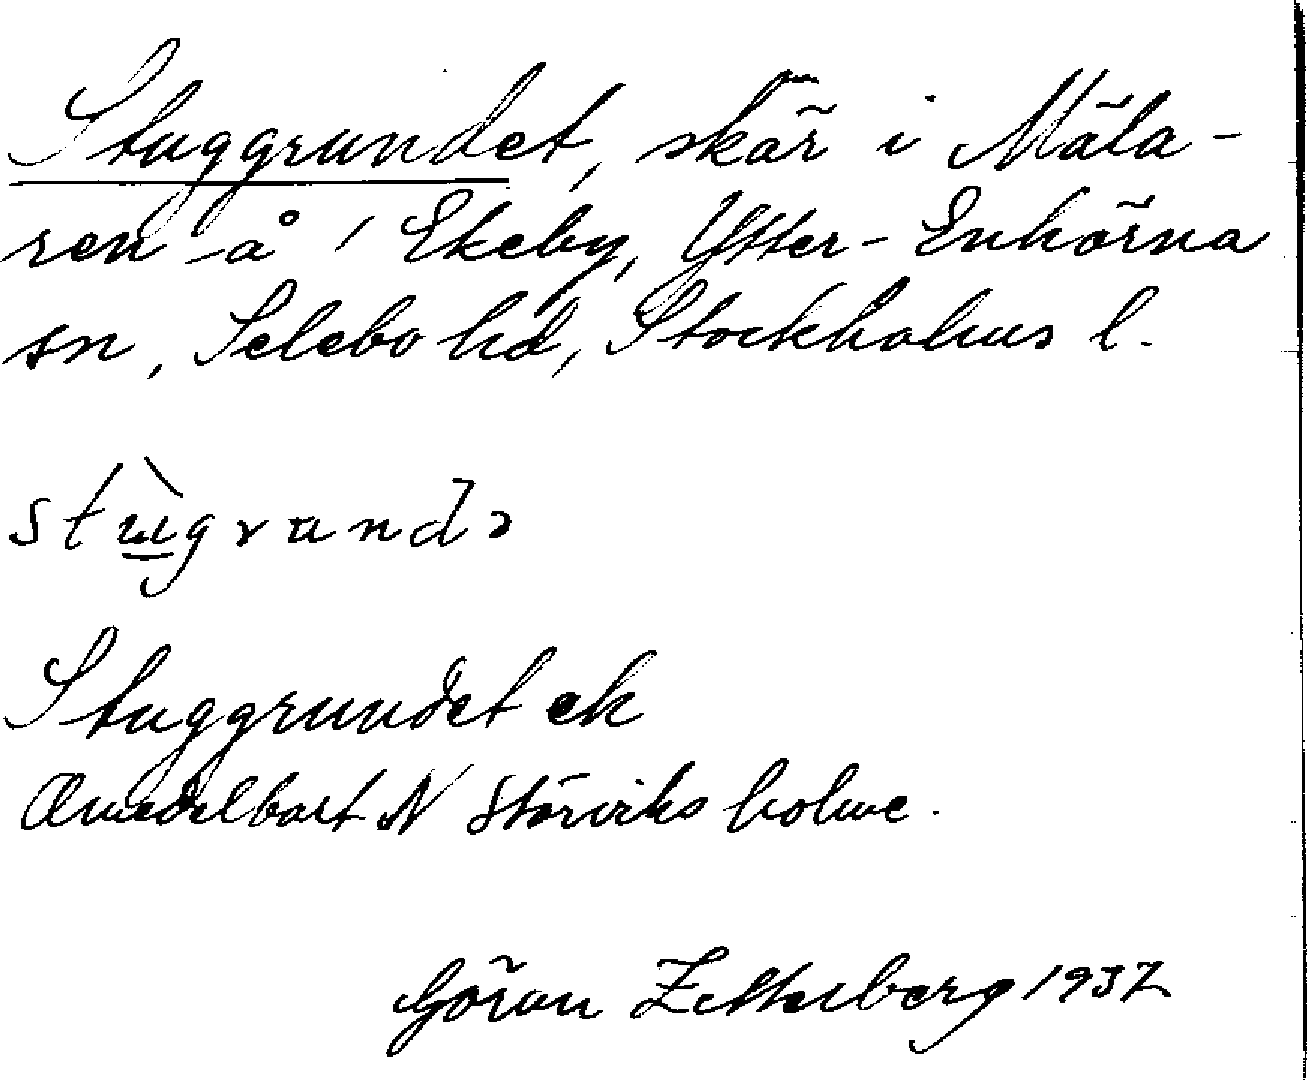 Stuggrundet, skär i Mäla-
ren å 1 Ekeby, Ytter-Enhörna
sn, Selebo hd, Stockholms l.
stùgrundə
Stuggrundet ek
Omedelbart N Störviks holme.
Göran Zetterberg 1937